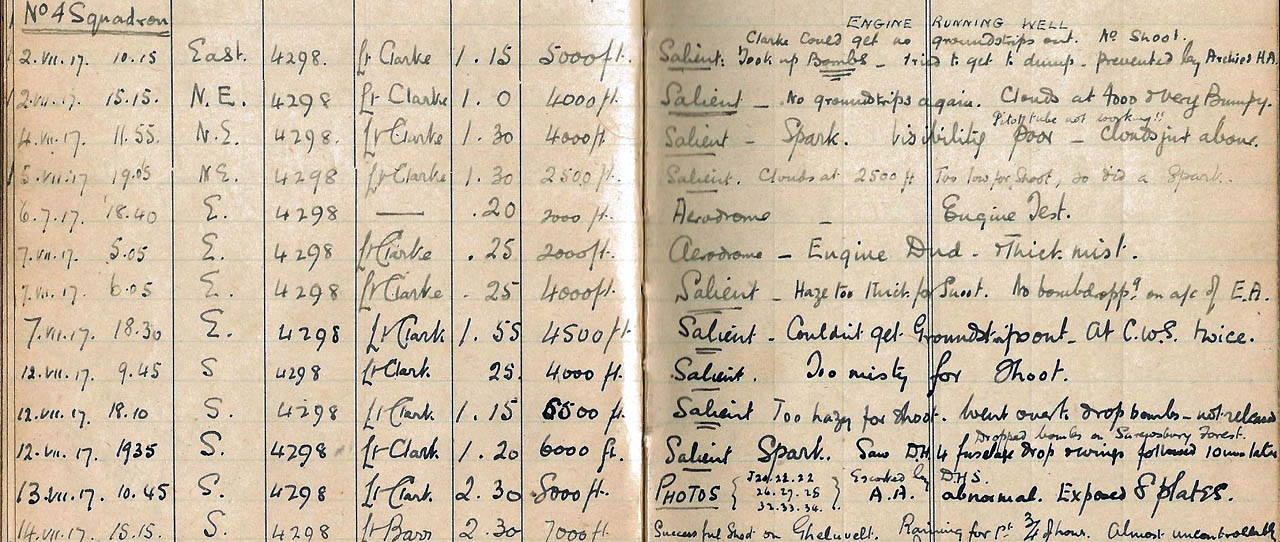 No 4 Squadron
ENGINE RUNNING WELL
Clarke Could get no groundstrips out. No Shoot.
2.VII.17. 10.15 East. 4298. Lt Clarke 1.15 5000ft. Salient. Took up Bombs - tried to get to dump - prevented by Archies H.A.
2.VII.17. 15.15. N.E. 4298 Lt Clarke 1.0 4000ft. Salient - No groundstrips again. Clouds at 4000 & very Bumpy.
Pitot tube not working!!
4.VII.17. 11.55. N.E. 4298. Lt Clarke 1.30 4000ft. Salient - Spark. Visibility poor - clouds just above.
5.VII.17. 19.05 N.E. 4298 Lt Clarke 1.30 2500ft. Salient. Clouds at 2500ft Too low for Shoot, so did a Spark.
6.7.17. 18.40 E. 4298 — .20 2000 ft. Aerodrome - Engine Test.
7.VII.17. 5.05 E. 4298 Lt Clarke .25 2000ft. Aerodrome - Engine Dud - & Thick mist.
7.VII.17. 6.05 E. 4298 Lt Clarke .25 4000ft. Salient - Haze too thick for Shoot. No bombdropp.g on a/c of E.A.
7.VII.17. 18.30 E. 4298 Lt Clark 1.55 4500ft. Salient - Couldn't get Groundstrips out - At C.W.S. twice.
12.VII.17. 9.45 S 4298 Lt Clark .25. 4000 ft. Salient. Too misty for Shoot.
12.VII.17. 18.10 S. 4298 Lt Clark 1.15 6500 ft. Salient Too hazy for shoot. Went over to drop bombs - not released
Dropped bombs on Shrewsbury Forest.
12.VII.17. 1935 S. 4298 Lt Clark 1.20 6000 ft. Salient Spark. Saw DH4 fuselage drop & wings followed 10 mins later
13.VII.17. 10.45 S. 4298 Lt Clark 2.30 8000ft. PHOTOS { J20.21.22 26.27.28 32.33.34. } Escorted by DH5. A.A. abnormal. Exposed 8 plates.
14.VII.17. 15.15. S. 4298 Lt Barr 2.30 7000ft. Successful Shoot on Gheluvelt. Raining for pt 3/4 of hour. Almost uncontrollable